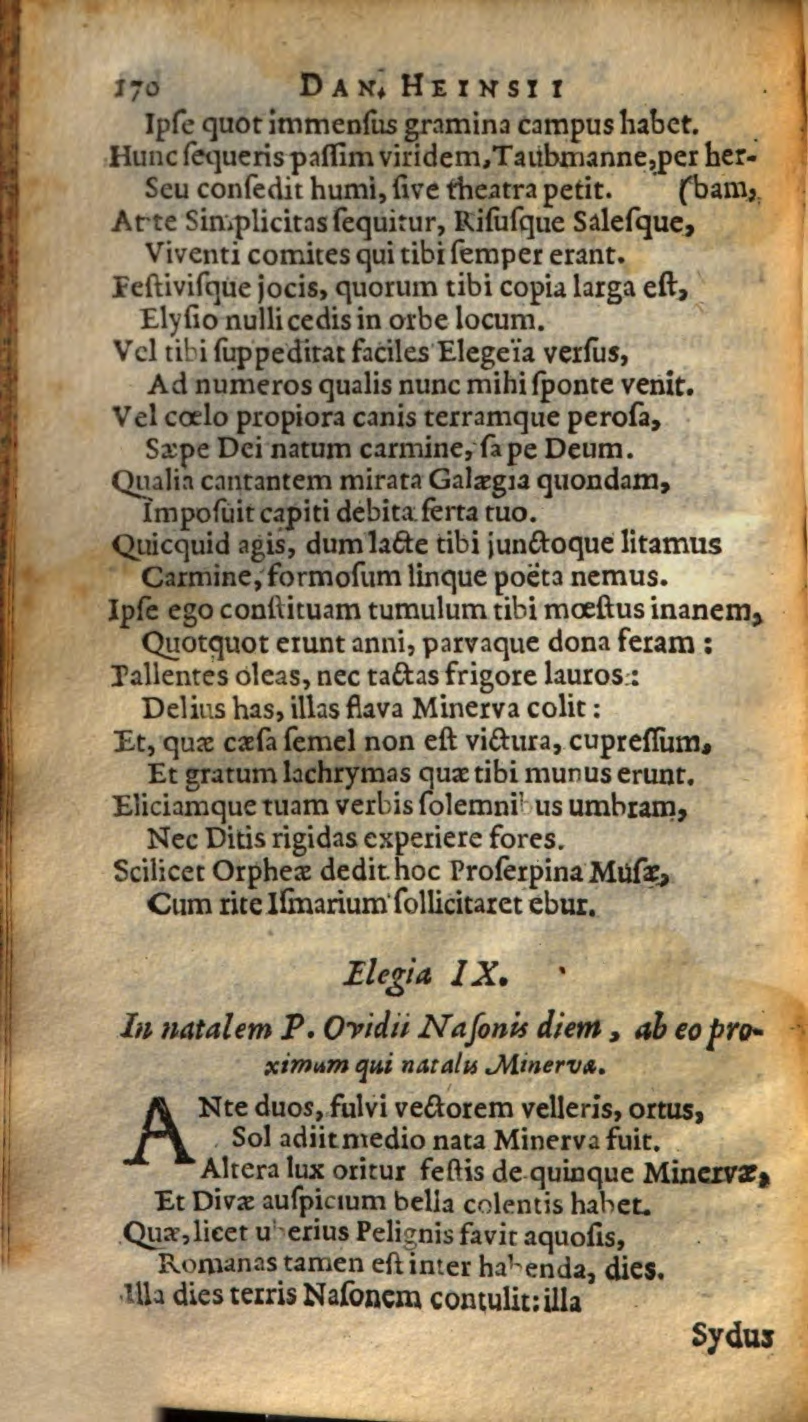 170 DAN. HEINSII
Ipſe quot immenſus gramina campus habet.
Hunc ſequeris paſſim viridem, Taubmanne, per her-
Seu conſedit humi, ſive theatra petit. (bam,
Arte Simplicitas ſequitur, Riſuſque Saleſque,
Viventi comites qui tibi ſemper erant.
Feſtiviſque jocis, quorum tibi copia larga eſt,
Elyſio nulli cedis in orbe locum.
Vel tibi ſuppeditat faciles Elegeïa verſus,
Ad numeros qualis nunc mihi ſponte venit.
Vel cœlo propiora canis terramque peroſa,
Sæpe Dei natum carmine, ſæpe Deum.
Qualia cantantem mirata Galægia quondam,
Impoſuit capiti debita ſerta tuo.
Quicquid agis, dum lacte tibi junctoque litamus
Carmine, formoſum linque poëta nemus.
Ipſe ego conſtituam tumulum tibi mœſtus inanem,
Quotquot erunt anni, parvaque dona feram :
Pallentes oleas, nec tactas frigore lauros :
Delius has, illas flava Minerva colit :
Et, quæ cæſa ſemel non eſt victura, cupreſſum,
Et gratum lachrymas quæ tibi munus erunt.
Eliciamque tuam verbis ſolemnibus umbram,
Nec Ditis rigidas experiere fores.
Scilicet Orpheæ dedit hoc Proſerpina Muſæ,
Cum rite Iſmarium ſollicitaret ebur.
Elegia IX.
In natalem P. Ovidii Naſonis diem, ab eo pro-
ximum qui natalis Minervæ.
ANte duos, fulvi vectorem velleris, ortus,
Sol adiit medio nata Minerva fuit.
Altera lux oritur feſtis de quinque Minervæ,
Et Divæ auſpicium bella colentis habet.
Quæ, licet uberius Pelignis favit aquoſis,
Romanas tamen eſt inter habenda, dies.
Illa dies terris Naſonem contulit: illa
Sydus